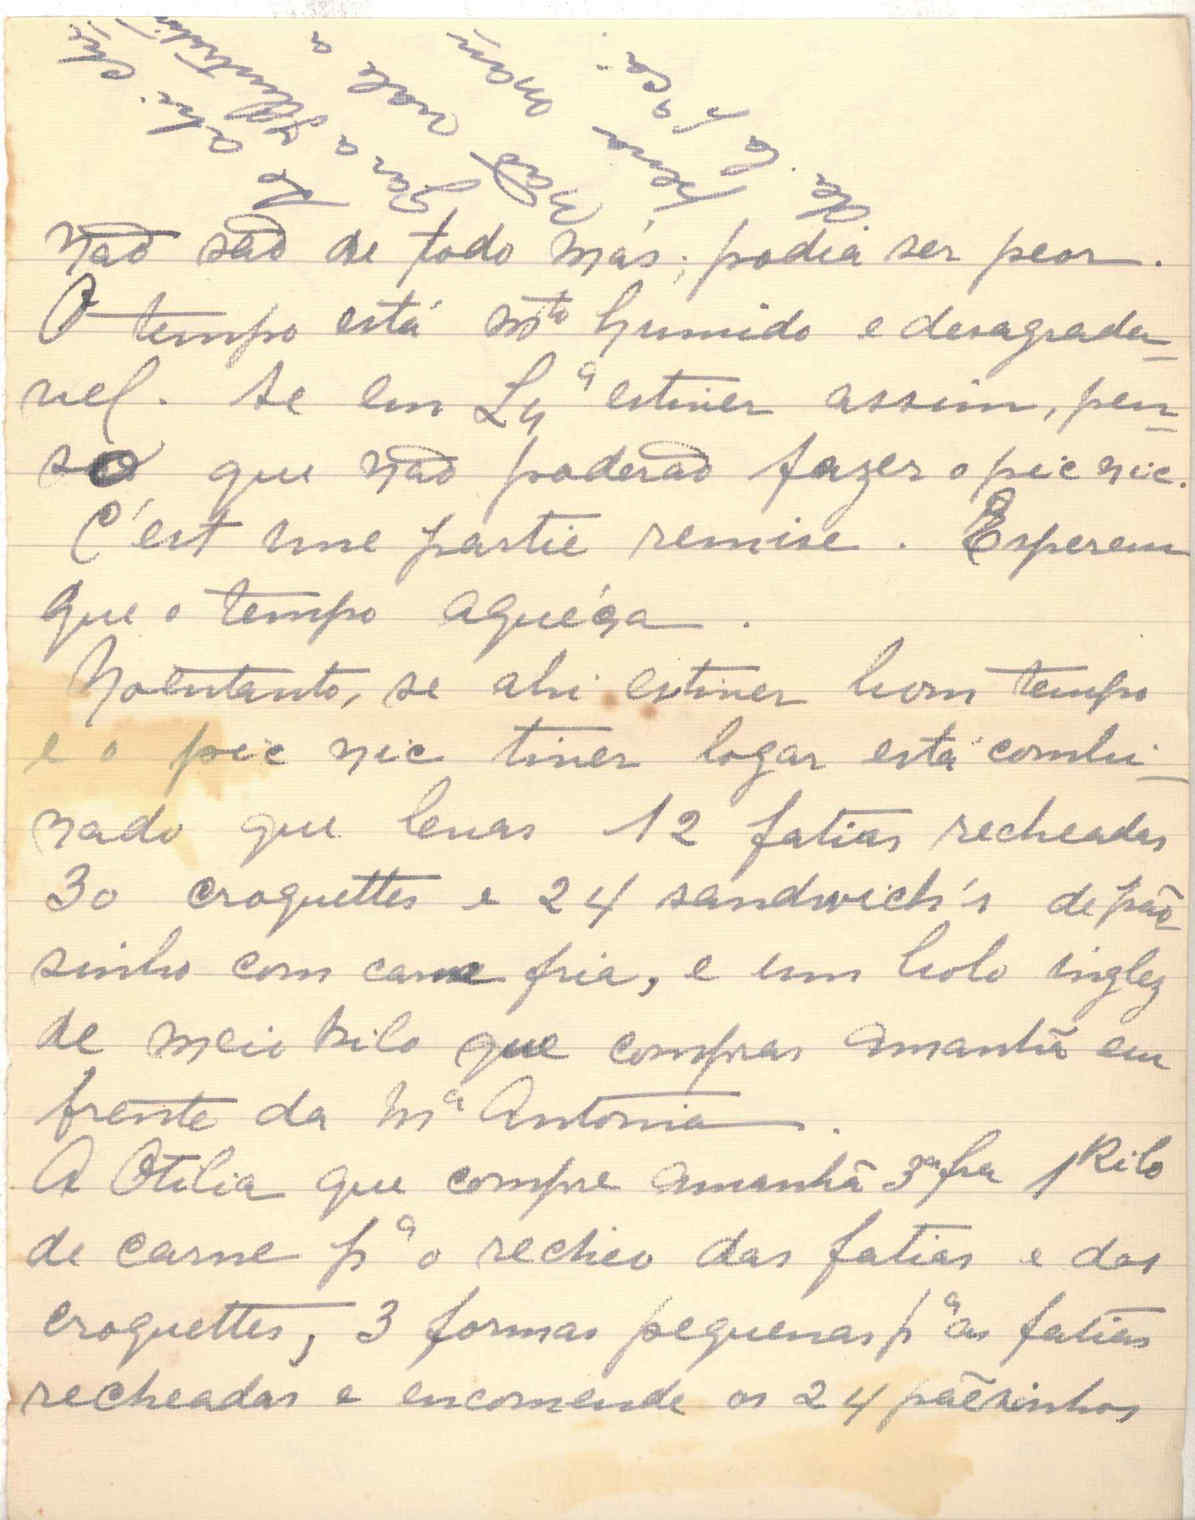 não são de todo más; podia ser peor.
O tempo está mto humido e desagrada-
vel. Se em Lxª estiver assim, pen-
so que não poderão fazer o pic nic.
C'est une partie remise. Esperem
que o tempo aqueça.
Noentanto, se ahi estiver bom tempo
e o pic nic tiver logar está combi-
nado que levas 12 fatias recheadas
30 croquettes e 24 sandwich's de pão-
sinho com carne fria, e um bolo inglez
de meio kilo que compras amanhã em
frente da Mª Antonia.
A Otilia que compre amanhã 3ª fra 1 Kilo
de carne pª o recheio das fatias e dos
croquettes, 3 formas pequenas pª as fatias
recheadas e encomende os 24 pãesinhos